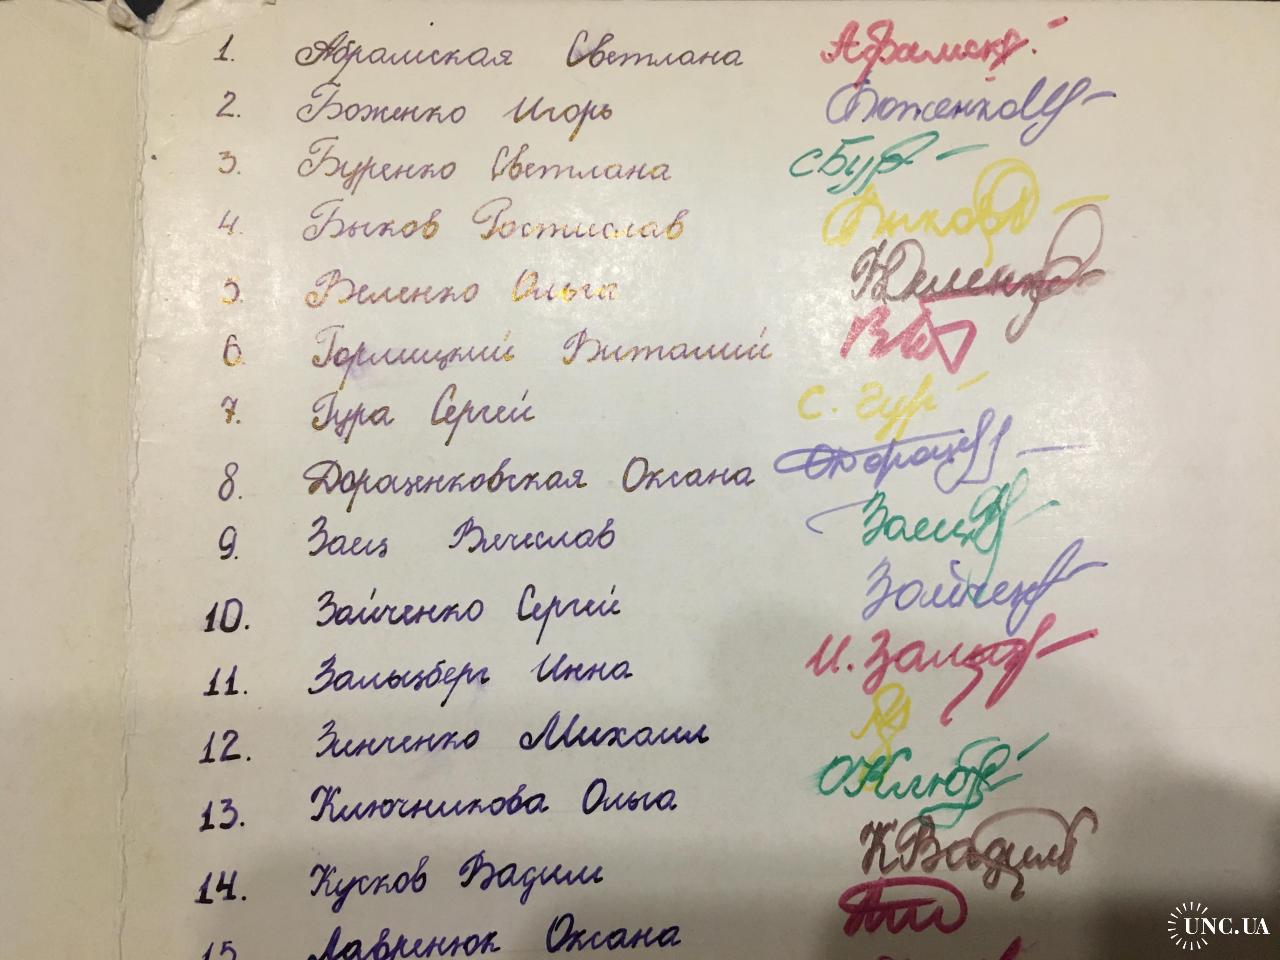 1. Абрамская Светлана Абрамск
2. Боженко Игорь Боженко
3. Буренко Светлана СБур
4. Быков Ростислав Быков
5. Веленко Ольга Веленко
6. Горлицкий Виталий
7. Гура Сергей С. Гур
8. Дораценковская Оксана ОДорац
9. Заец Вячеслав Заец
10. Зайченко Сергей Зайчен
11. Зальцберг Инна И. Зальц
12. Зинченко Михаил
13. Ключникова Ольга ОКлюч
14. Кусков Вадим КВадим
15. Лавренюк Оксана
UNC.UA